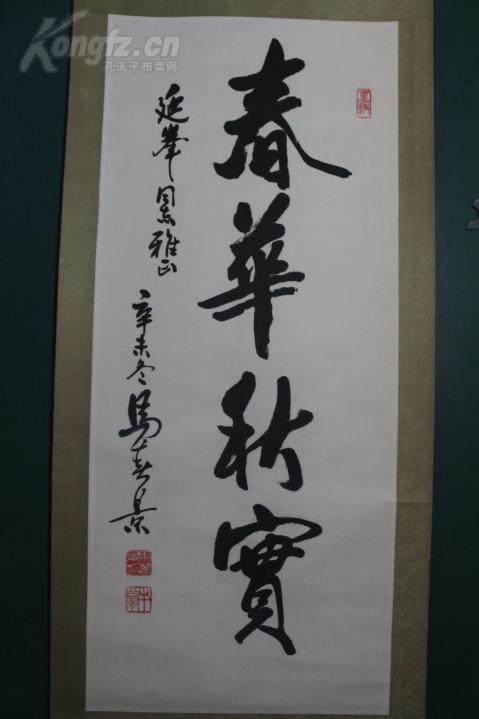 春華秋實
延峯同志雅正
辛未冬馬春景
Kongfz.cn
孔夫子拍卖网